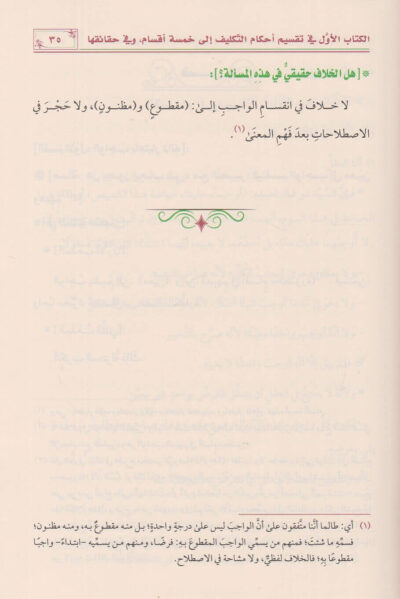 الكتاب الأوّل في تقسيم أحكام التّكليف إلى خمسة أقسام، وفي حقائقها
٣٥
* [هل الخلاف حقيقيٌّ في هذِهِ المسألة؟]:
لا خلافَ في انقسامِ الواجبِ إلىٰ: (مقطوعٍ) و(مظنونٍ)، ولا حَجْرَ في
الاصطلاحاتِ بعدَ فَهْمِ المعنَىٰ(١).
(١) أي: طالما أنَّنا متَّفقون علىٰ أنَّ الواجبَ ليس علىٰ درجةٍ واحدةٍ؛ بل منه مقطوعٌ به، ومنه مظنون؛
فسمِّهِ ما شئتَ؛ فمنهم من يسمِّي الواجبَ المقطوعَ بهِ: فرضًا، ومنهم من يسمِّيه -ابتداءً- واجبًا
مقطوعًا بِهِ؛ فالخلاف لفظيٌّ، ولا مشاحة في الاصطلاح.